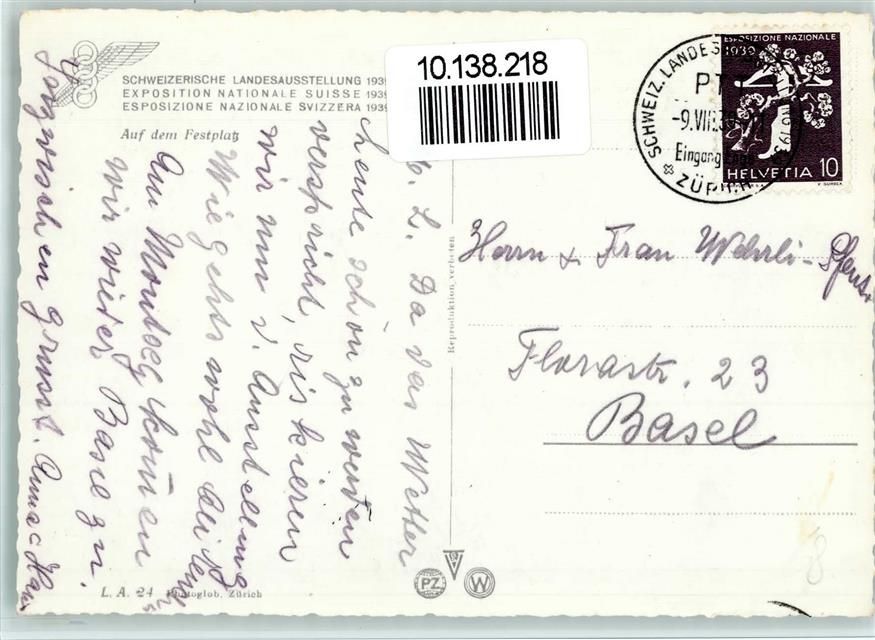 SCHWEIZERISCHE LANDESAUSSTELLUNG 1939
EXPOSITION NATIONALE SUISSE 1939
ESPOSIZIONE NAZIONALE SVIZZERA 1939
Auf dem Festplatz
10.138.218
SCHWEIZ. LANDES
PT
-9.VIII.39
Eingang
ZÜRICH
ESPOSIZIONE NAZIONALE
1939
HELVETIA 10
L. Da das Wetter
heute schön zu werden
verspricht, riskieren
wir nun d. Ausstellung
Wie gehts wohl
Am Montag kommen
wir wieder Basel zu.
Inzwischen grüsst. Anna
Reproduktion verboten
Herrn & Frau Wehrli-
Florastr. 23
Basel
L. A. 24 Photoglob. Zürich
PZ
W